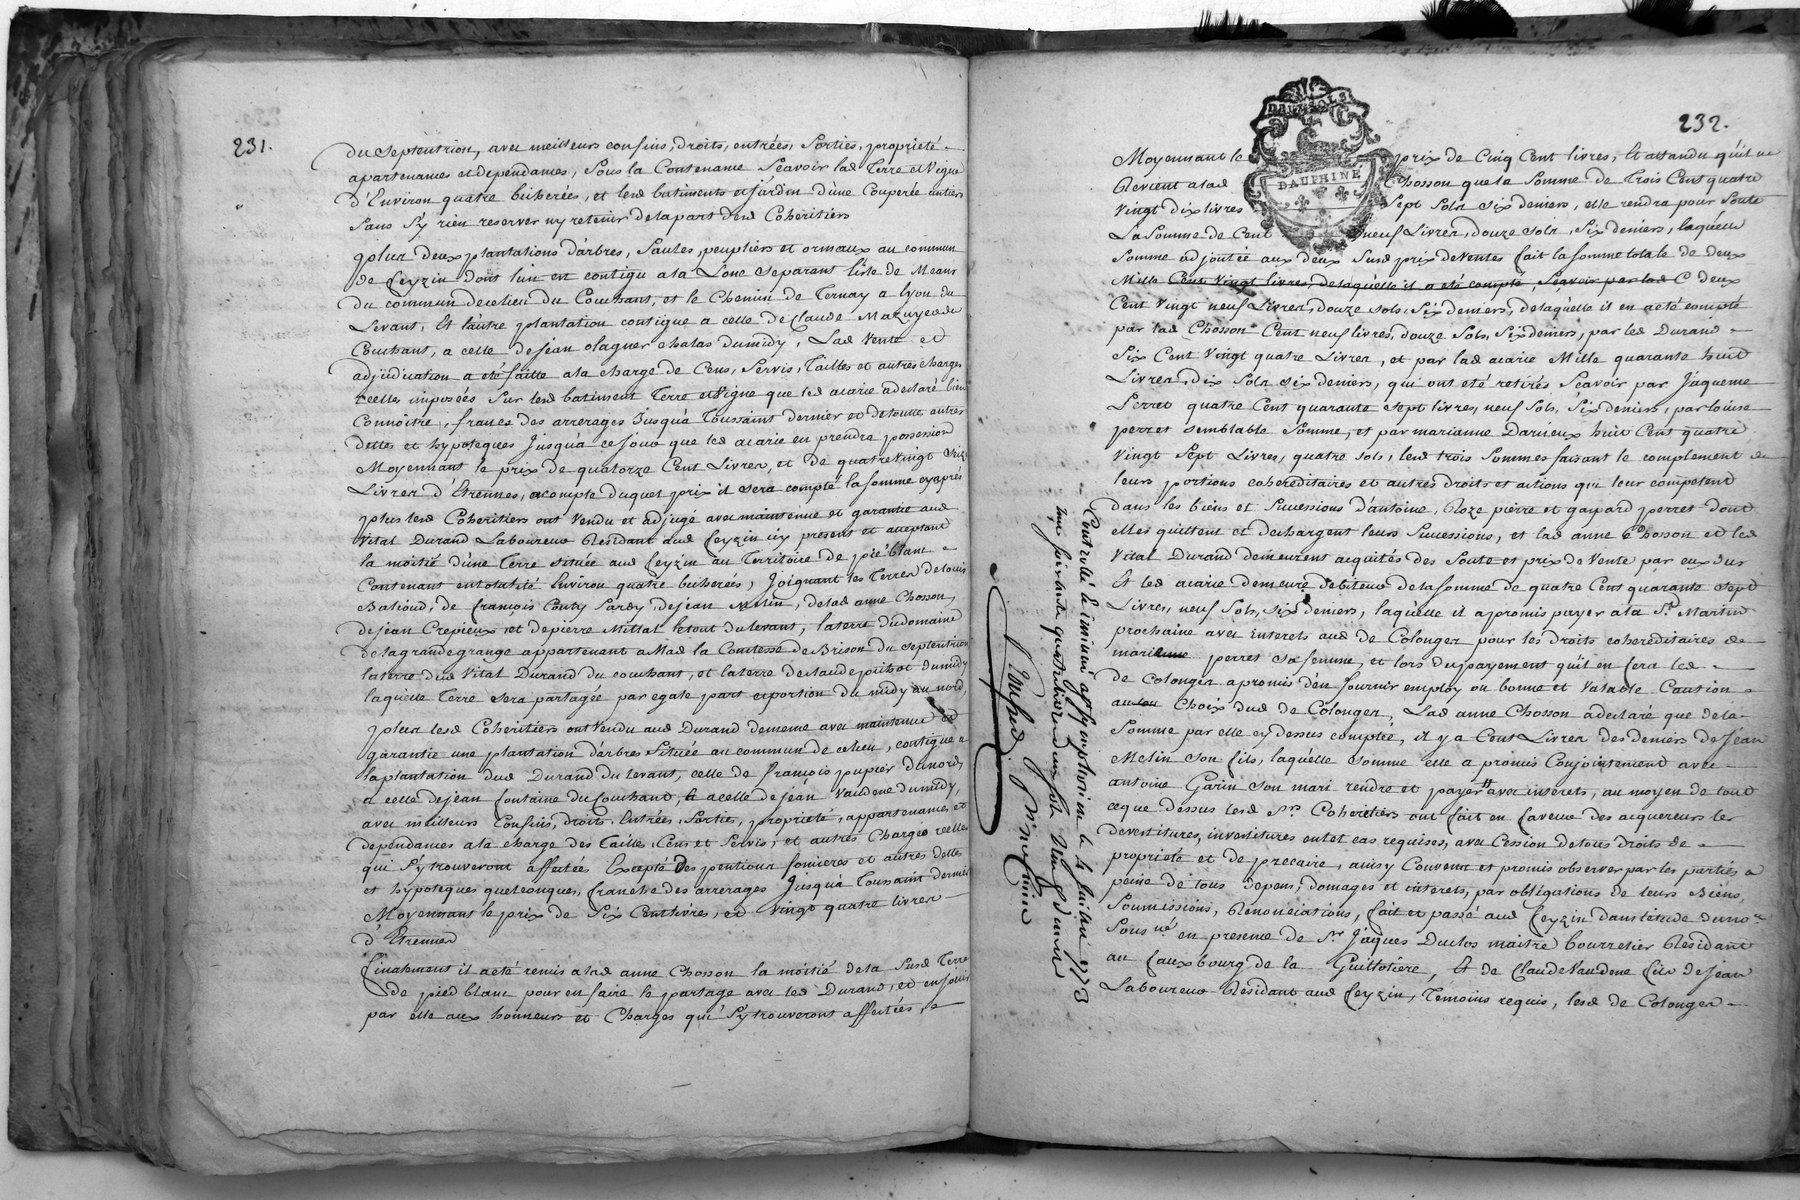 231.
du Septentrion, avec meilleurs confins, droits, entrées, Sorties, proprieté
apartenances et dependances, Sous la Contenance Scavoir lad Terre et Vigne
d'Environ quatre bicherées, et lesd batiments et jardin d'une Couperée entiers
Sans s'y rien reserver ny retenir de la part desd Coheritiers
plus deux plantations d'arbres, Saules, peupliers et ormeaux au commun
de feyzin dont l'un est contigu a la Lone Separant l'isle de
du commun de ce lieu du Couchant, et le Chemin de Ternay a lyon du
Levant, Et l'autre plantation contigue a celle de Claude Mazuyer du
Couchant, a celle de Jean olagner chalas du midy, Lad Vente et
adjudication a eté faitte a la charge de Cens, Servis, Tailles et autres charges
reelles imposées Sur lesd batiment Terre et Vigne que led acarie a declaré bien
Connoitre, franes des arrerages Jusqu'a Toussaint dernier et de toutte autres
dettes et hypoteques Jusqu'a ce jour que led acarie en prendra possession
Moyennant le prix de quatorze Cent Livres, et de quatre Vingt Seize
Livres d'Etrennes, acompte duquel prix il sera compté la somme cyaprés
plus lesd Coheritiers ont Vendu et adjugé avec maintenue et garantie aud
Vital Durand Laboureur Residant aud feyzin icy present et acceptant
la moitié d'une Terre située aud feyzin au Territoire de pié blanc
Contenant en totalité Environ quatre bicherées, Joignant les Terres de louis
Batioud, de françois Couty Pardy, de jean melin, de lad anne Chosson,
de Jean Crepieux, et de pierre Mittal le tout du levant, la terre du domaine
de la grande grange appartenant a Mad la Comtesse de Brison du Septentrion
la terre dud Vital Durand du couchant, et la terre de claude du midy
laquelle Terre sera partagée par egale part et portion du midy au nord,
plus lesd Coheritiers ont Vendu aud Durand de meme avec maintenue et
garantie une plantation d'arbres Située au commun de ce lieu, contigue a
la plantation dud Durand du levant, celle de françois pupier du nord,
a celle de jean fontaine du Couchant, & a celle de jean Vaudene du midy,
avec meilleurs Confins, droits, Entrées, Sorties, proprieté, appartenances, et
dependances a la charge des Tailles, Cens et Servis, et autres Charges reelles
qui s'y trouveront affectées Excepté Des pentions fonsieres et autres dettes
et hypoteques quelconques, franche des arrerages Jusqu'a Toussaint dernier
Moyennant le prix de Six Cent livres, et vingt quatre livres
d'Etrennes
finalment il a eté remis a lad anne Chosson la moitié de la Susd Terre
de pied blanc pour en faire le partage avec led Durand, et en jouir
par elle aux honneurs et Charges qui s'y trouveront affectées, e
232.
DAUPHINÉ
Moyennant le prix de Cinq Cent livres, Et attandu qu'il ne
Revient a lad Chosson que la Somme de Trois Cent quatre
Vingt dix livres Sept Sols Six deniers, elle rendra pour Soute
La Somme de Cent neuf Livres, douze Sols, Six deniers, laquelle
Somme adjoutée aux deux Susd prix de Ventes fait la somme totale de deux
Mille Cent Vingt livres, de laquelle il a eté compté, Scavoir par lad C deux
Cent Vingt neuf Livres, douze Sols, Six deniers, de laquelle il en a eté compté
par lad Chosson Cent neuf livres, douze Sols, Six deniers, par led Durand
Six Cent Vingt quatre Livres, et par led acarie Mille quarante huit
Livres, dix Sols Six deniers, qui ont eté retirés Scavoir par Jaqueme
Perret quatre Cent quarante Sept livres, neuf Sols, Six deniers, par louise
perret Semblable Somme, et par marianne Darieux huit Cent quatre
Vingt Sept Livres, quatre Sols, lesd trois Sommes faisant le complement de
leurs portions cohereditaires et autres droits et actions qui leur competent
dans les biens et Successions d'antoine, Roze pierre et gaspard perret dont
elles quittent et dechargent leurs Successions, et lad anne Chosson et led
Vital Durand demeurent acquités des Soute et prix de Vente par eux dus
Et led acarie demeure debiteur de la Somme de quatre Cent quarante Sept
Livres, neuf Sols, Six deniers, laquelle il a promis payer a la St Martin
prochaine avec interets aud de Colonger pour les droits cohereditaires de
marianne perret sa femme, et lors du payement qu'il en fera led
de Colonger a promis d'en fournir employ ou bonne et Valable Caution
au Choix dud de Colonger, Lad anne Chosson a declaré que de la
Somme par elle cy dessus comptée, il y a Cent Livres des deniers de Jean
Melin son fils, laquelle somme elle a promis Conjointement avec
antoine Garin son mari rendre et payer avec interets, au moyen de tout
ce que dessus lesd Srs Coheritiers ont fait en faveur des acquereurs les
devestitures, investitures en tel cas requises, avec Cession de tous droits de
proprieté et de precaire, ainsy Couvenu et promis observer par les parties, a
peine de tous depens, domages et interets, par obligations de leurs Biens,
Soumissions, Renonciations, fait et passé aud feyzin dans l'etude du no.re
Sous né en presence de Sr Jaques Duclos maitre bourrelier Residant
au fauxbourg de la Guillotiere, Et de Claude Vaudene fils de Jean
Laboureur Residant aud feyzin, Temoins requis, lesd de Colonger
Controllé & insinué a St Symphorien le 4 Juillet 1773